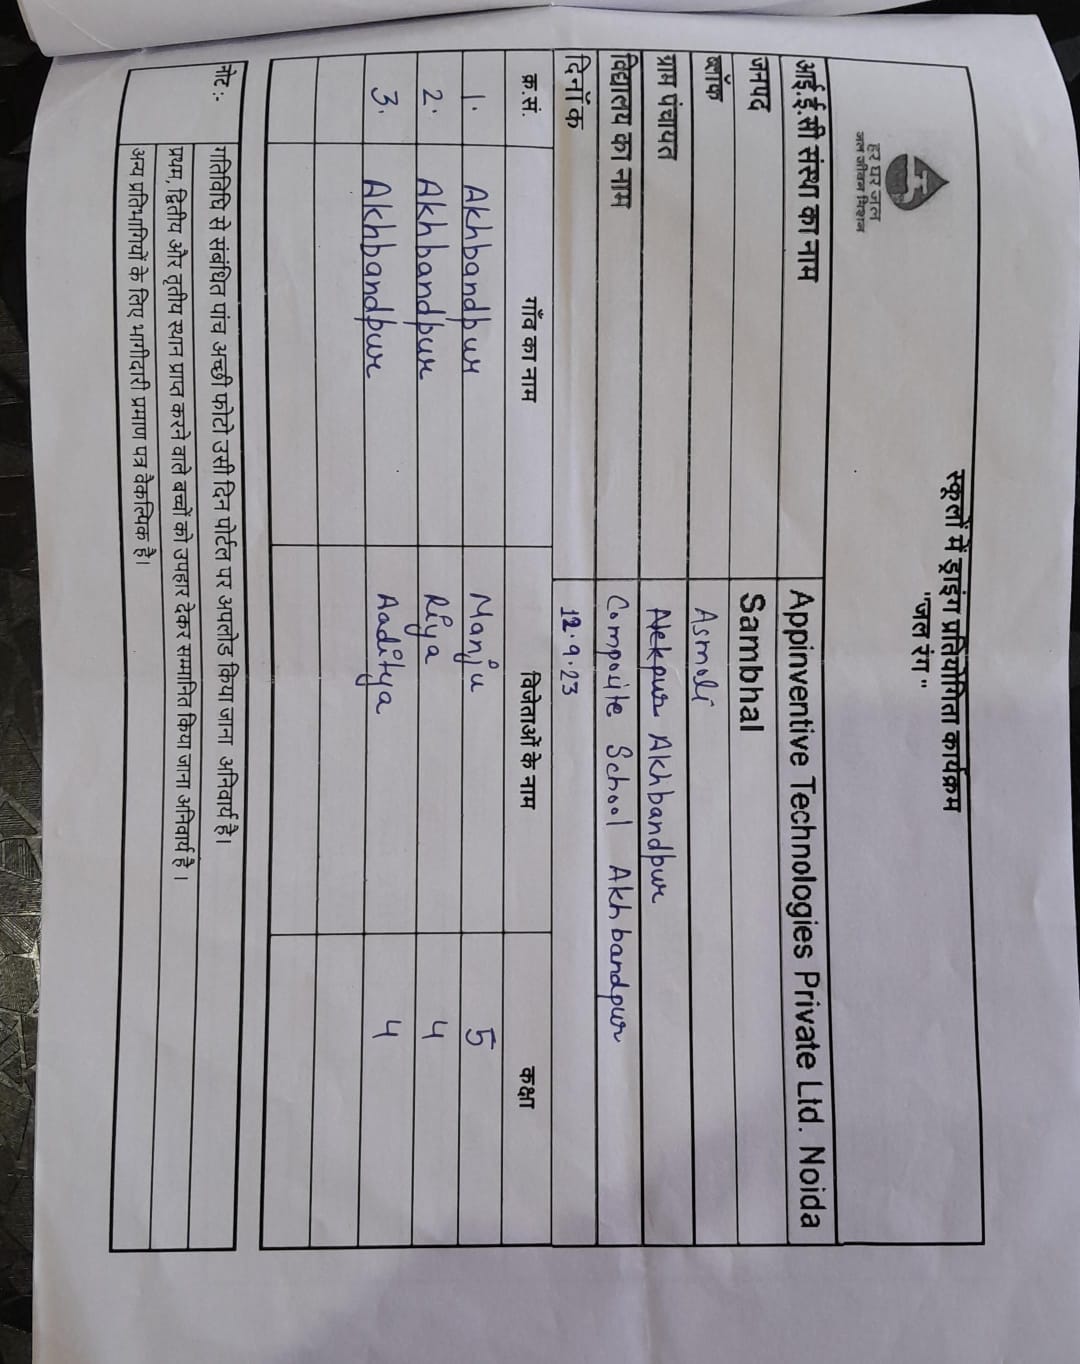 हर घर जल
जल जीवन मिशन
स्कूलों में ड्राइंग प्रतियोगिता कार्यक्रम
"जल रंग"
आई.ई.सी संस्था का नाम Appinventive Technologies Private Ltd. Noida
जनपद Sambhal
ब्लॉक Asmoli
ग्राम पंचायत Akhbandpur
विद्यालय का नाम Composite School Akhbandpur
दिनाँक 12.9.23
क्र.सं. गाँव का नाम विजेताओं के नाम कक्षा
1. Akhbandpur Manju 5
2. Akhbandpur Riya 4
3. Akhbandpur Aaditya 4
नोट :- गतिविधि से संबंधित पांच अच्छी फोटो उसी दिन पोर्टल पर अपलोड किया जाना अनिवार्य है।
प्रथम, द्वितीय और तृतीय स्थान प्राप्त करने वाले बच्चों को उपहार देकर सम्मानित किया जाना अनिवार्य है ।
अन्य प्रतिभागियों के लिए भागीदारी प्रमाण पत्र वैकल्पिक है।